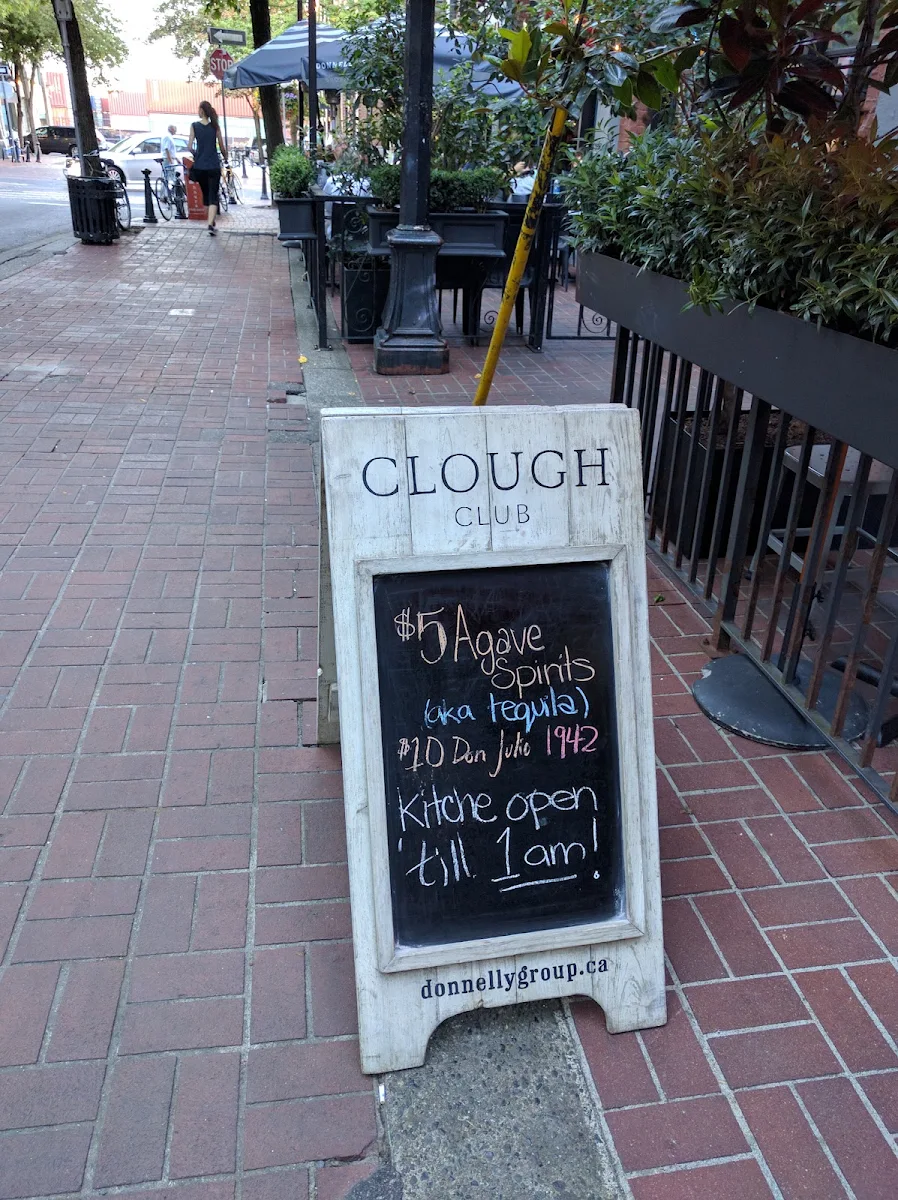 STOP
CLOUGH
CLUB
$5 Agave
Spirits
(aka tequila)
$10 Don Julio 1942
Kitche open
'till 1am!
donnellygroup.ca